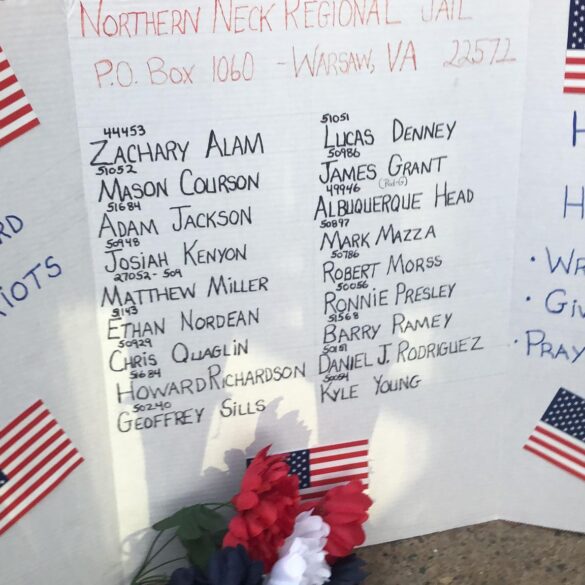 NORTHERN NECK REGIONAL JAIL
P.O. BOX 1060 - WARSAW, VA 22572
44453
ZACHARY ALAM
51052
MASON COURSON
51684
ADAM JACKSON
50948
JOSIAH KENYON
27052-509
MATTHEW MILLER
51143
ETHAN NORDEAN
50929
CHRIS QUAGLIN
51684
HOWARD RICHARDSON
50240
GEOFFREY SILLS
51051
LUCAS DENNEY
50986
JAMES GRANT
49946
ALBUQUERQUE HEAD
50897
MARK MAZZA
50786
ROBERT MORSS
50056
RONNIE PRESLEY
51568
BARRY RAMEY
50151
DANIEL J. RODRIGUEZ
KYLE YOUNG
RD
IOTS
H
H
• WR
• GIV
• PRAY